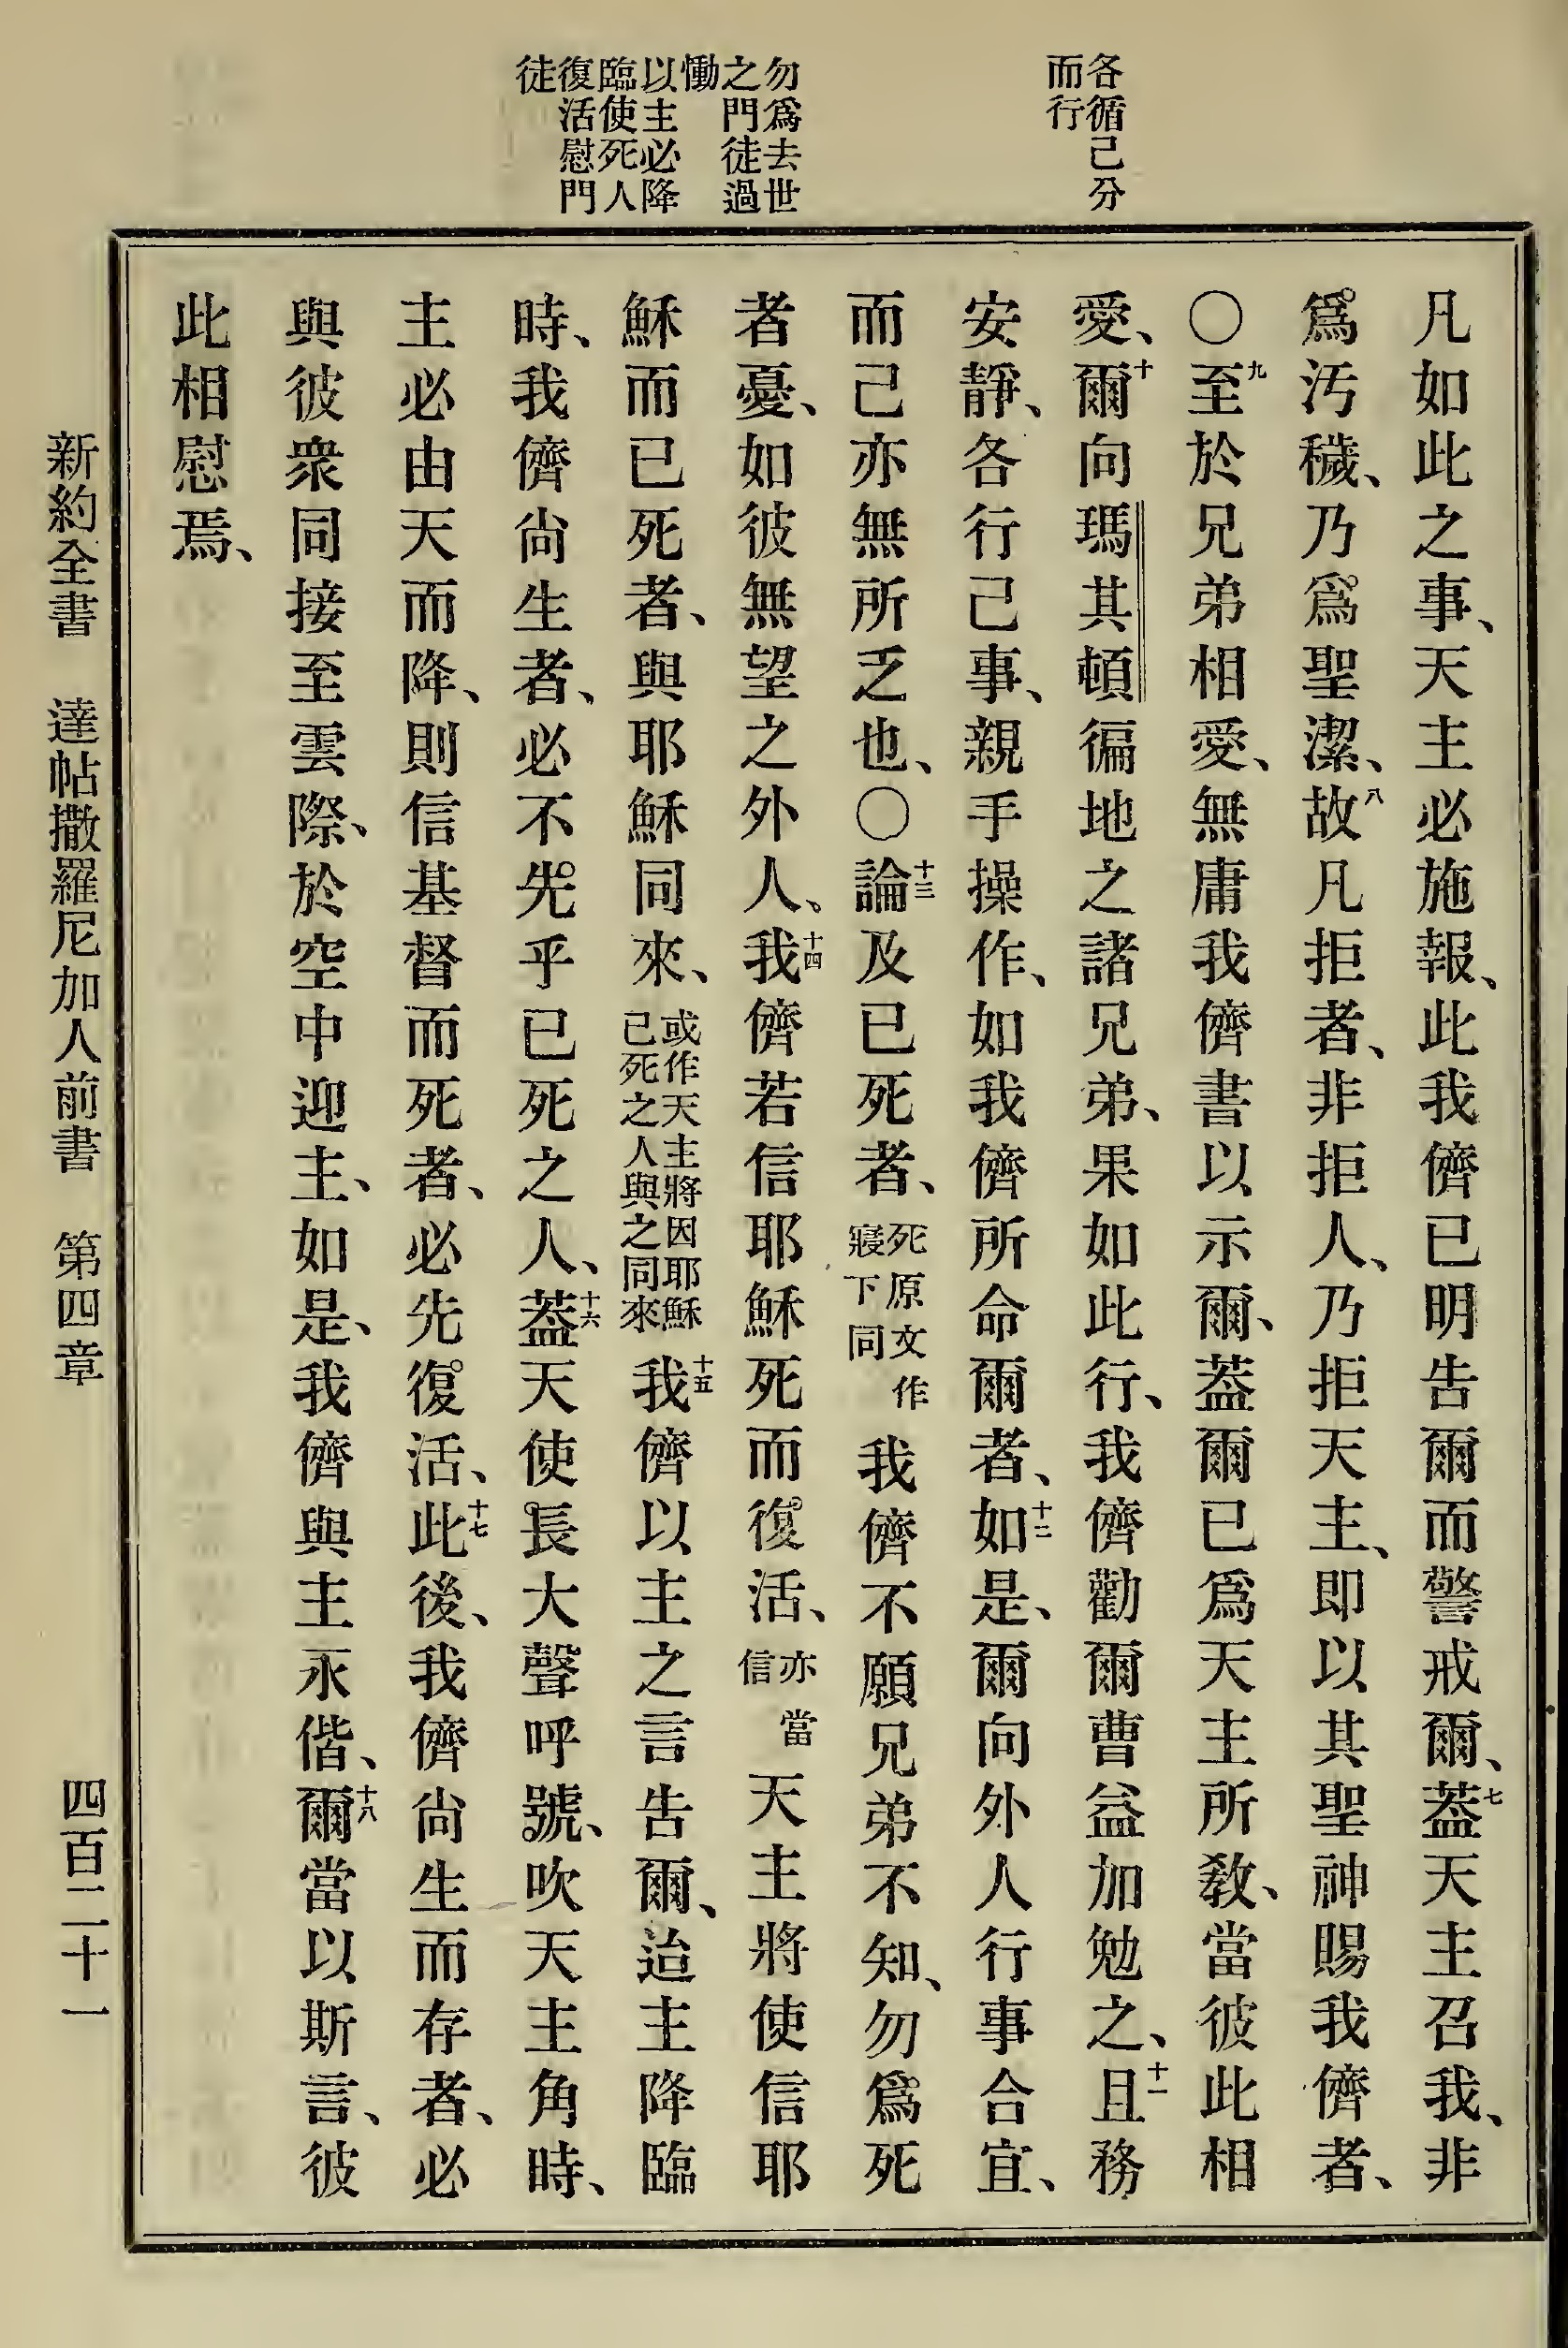 各循己分
而行
勿爲去世
之門徒過
慟
以主必降
臨使死人
復活慰門
徒
凡如此之事、天主必施報、此我儕已明告爾而警戒爾、七蓋天主召我、非
爲汚穢、乃爲聖潔、八故凡拒者、非拒人、乃拒天主、即以其聖神賜我儕者、
〇九至於兄弟相愛、無庸我儕書以示爾、蓋爾已爲天主所敎、當彼此相
愛、十爾向瑪其頓徧地之諸兄弟、果如此行、我儕勸爾曹益加勉之、十一且務
安靜、各行己事、親手操作、如我儕所命爾者、十二如是、爾向外人行事合宜、
而己亦無所乏也、〇十三論及已死者、死原文作寢下同我儕不願兄弟不知、勿爲死
者憂、如彼無望之外人、十四我儕若信耶穌死而復活、亦當信天主將使信耶
穌而已死者、與耶穌同來、或作天主將因耶穌已死之人與之同來十五我儕以主之言告爾、迨主降臨
時、我儕尙生者、必不先乎已死之人、十六蓋天使長大聲呼號、吹天主角時、
主必由天而降、則信基督而死者、必先復活、十七此後、我儕尙生而存者、必
與彼衆同接至雲際、於空中迎主、如是、我儕與主永偕、十八爾當以斯言、彼
此相慰焉、
新約全書 達帖撒羅尼加人前書 第四章 四百二十一